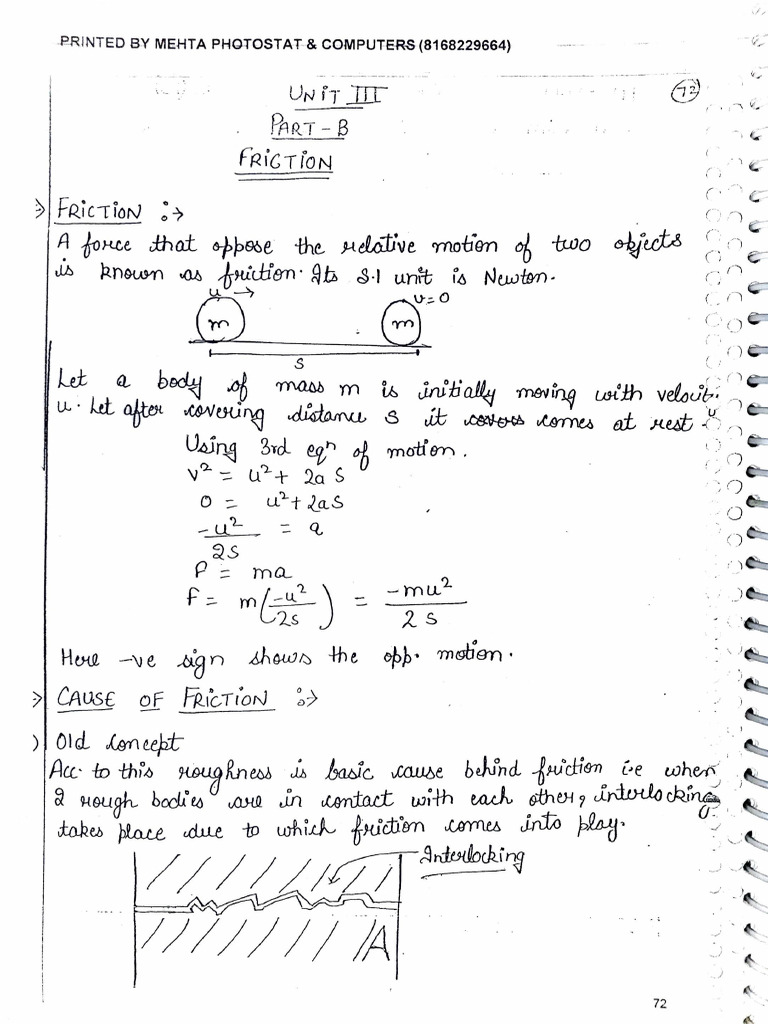 PRINTED BY MEHTA PHOTOSTAT & COMPUTERS (8168229664)
UNIT III
72
PART-B
FRICTION
FRICTION :→
A force that oppose the relative motion of two objects
is known as friction. Its S.I unit is Newton.
u →
v=0
m
m
S
Let a body of mass m is initially moving with velocit.
u. Let after covering distance S it covers comes at rest.
Using 3rd eqn of motion.
v² = u² + 2a S
0 = u² + 2aS
-u²/2S = a
F = ma
F = m(-u²/2s) = -mu²/2 S
Here -ve sign shows the opp. motion.
CAUSE OF FRICTION :→
) Old concept
Acc. to this roughness is basic cause behind friction i.e when
2 rough bodies are in contact with each other, interlocking
takes place due to which friction comes into play.
Interlocking
A
72